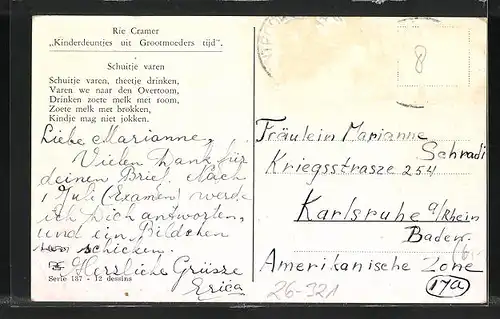 Rie Cramer
„Kinderdeuntjes uit Grootmoeders tijd”.
Schuitje varen
Schuitje varen, theetje drinken,
Varen we naar den Overtoom,
Drinken zoete melk met room,
Zoete melk met brokken,
Kindje mag niet jokken.
Liebe Marianne,
Vielen Dank für
deinen Brief. Nach
1 Juli (Examen) werde
ich Dich antworten,
und ein Bildchen
schicken.
Herzliche Grüsse
Erica
Serie 187 - 12 dessins
8
Fräulein Marianne
Schradi
Kriegsstrasze 254
Karlsruhe a/Rhein
Baden.
Amerikanische Zone
17a
26-321